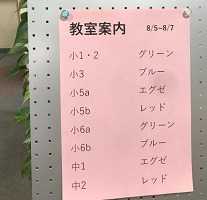 教室案内 8/5~8/7
小1・2 グリーン
小3 ブルー
小5a エグゼ
小5b レッド
小6a グリーン
小6b ブルー
中1 エグゼ
中2 レッド